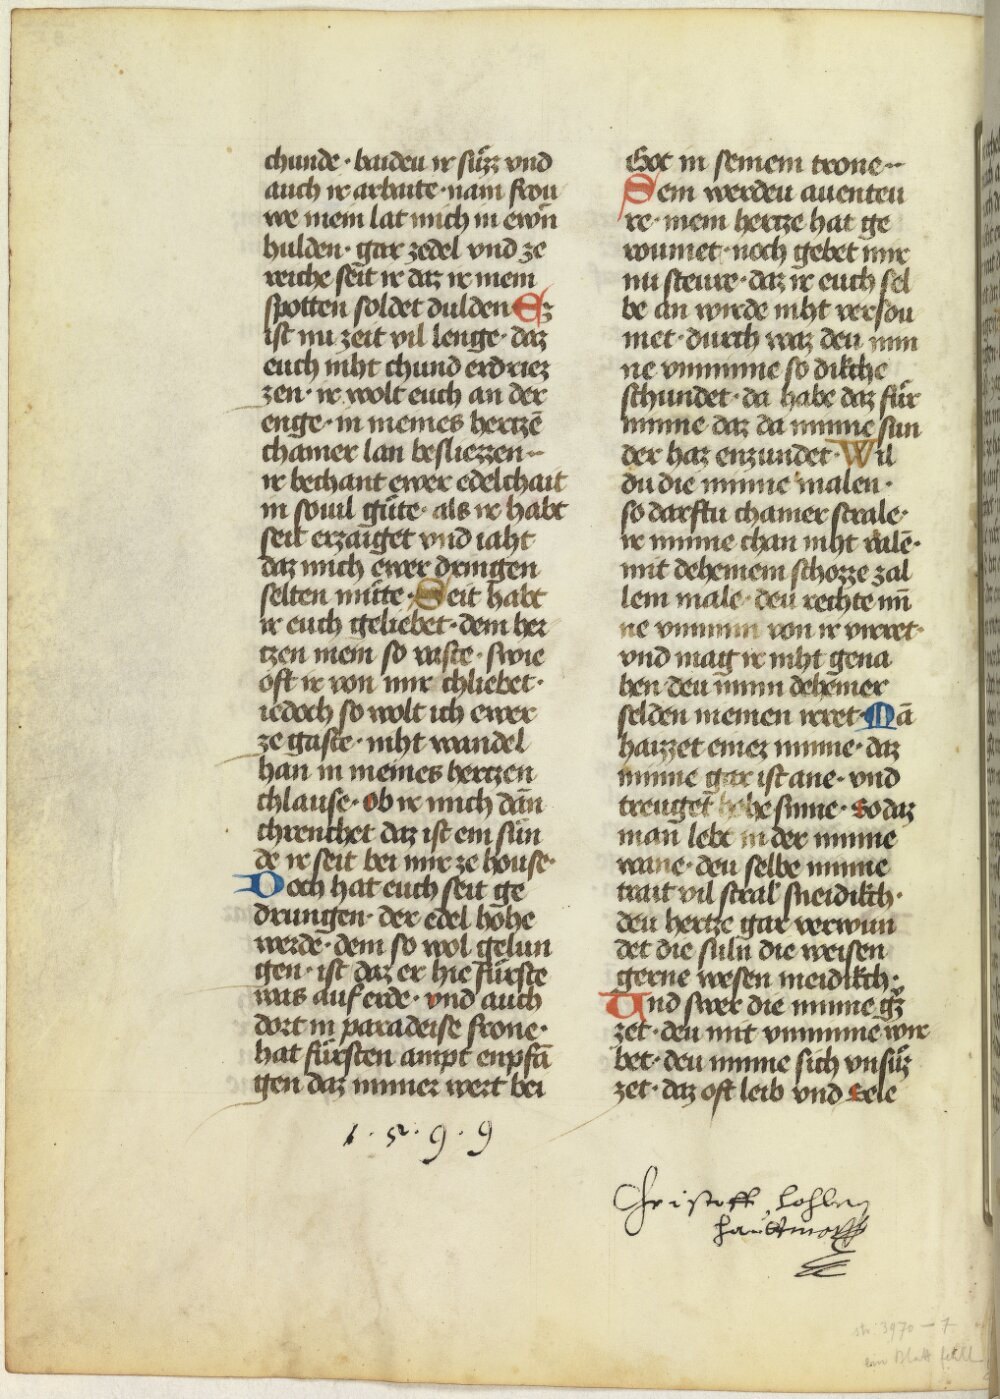 chunde · baideu ir süzz vnd
auch ir arbaite · nain frou
we mein lat mich in ewrn
hulden · gar zedel vnd ze
reiche seit ir daz ir mein
spotten soldet dulden Ez
ist nu zeit vil lenge · daz
euch niht chund erdriez
zen · ir wolt euch an der
enge · in meines hertzē
chamer lan besliezzen ··
ir bechant ewer edelchait
in souil güte · als ir habt
seit erzaiget vnd iaht
daz mich ewer dringen
selten müte · Seit habt
ir euch geliebet · dem her
tzen mein so vaste · swie
oft ir von mir chliebet ·
iedoch so wolt ich ewer
ze gaste · niht wandel
han in meines hertzen
chlause · ob ir mich dān
chrenchet daz ist ein sün
de ir seit bei mir ze house ·
Doch hat euch seit ge
drungen · der edel hohe
werde · dem so wol gelun
gen · ist daz er hie fürste
was auf erde · vnd auch
dort in paradeise frone ·
hat fürsten ampt enpfā
gen daz immer wert bei
1 · 5 · 9 · 9
Got in seinem trone ··
Sein werdeu auenteu
re · mein hertze hat ge
roumet · noch gebet mir
nu steure · daz ir euch sel
be an wirde niht versou
met · durch waz deu min
ne vnminne so dikche
schundet · da habe daz für
minne daz da minne sun
der haz enzundet · Wil
du die minne malen ·
so darftu chamer strale ·
ir minne chan niht valē ·
mit deheinem schozze zal
lem male · deu rechte mī
ne vnminn von ir virret ·
vnd mag ir niht gena
hen deu minn deheiner
selden meinen irret · Mā
haizzet einez minne · daz
minne gar ist ane · vnd
treuget hohe sinne · so daz
man lebt in der minne
wane · deu selbe minne
trait vil stral sneidikch ·
deu hertze gar verwun
det die suln die weisen
gerne wesen meidikch ·
Und swer die minne gz̈
zet · deu mit vnminne wir
bet · deu minne sich vnsüz
zet · daz oft leib vnd sele
Christoff
str. 3970 — 7
ein Blatt fehlt